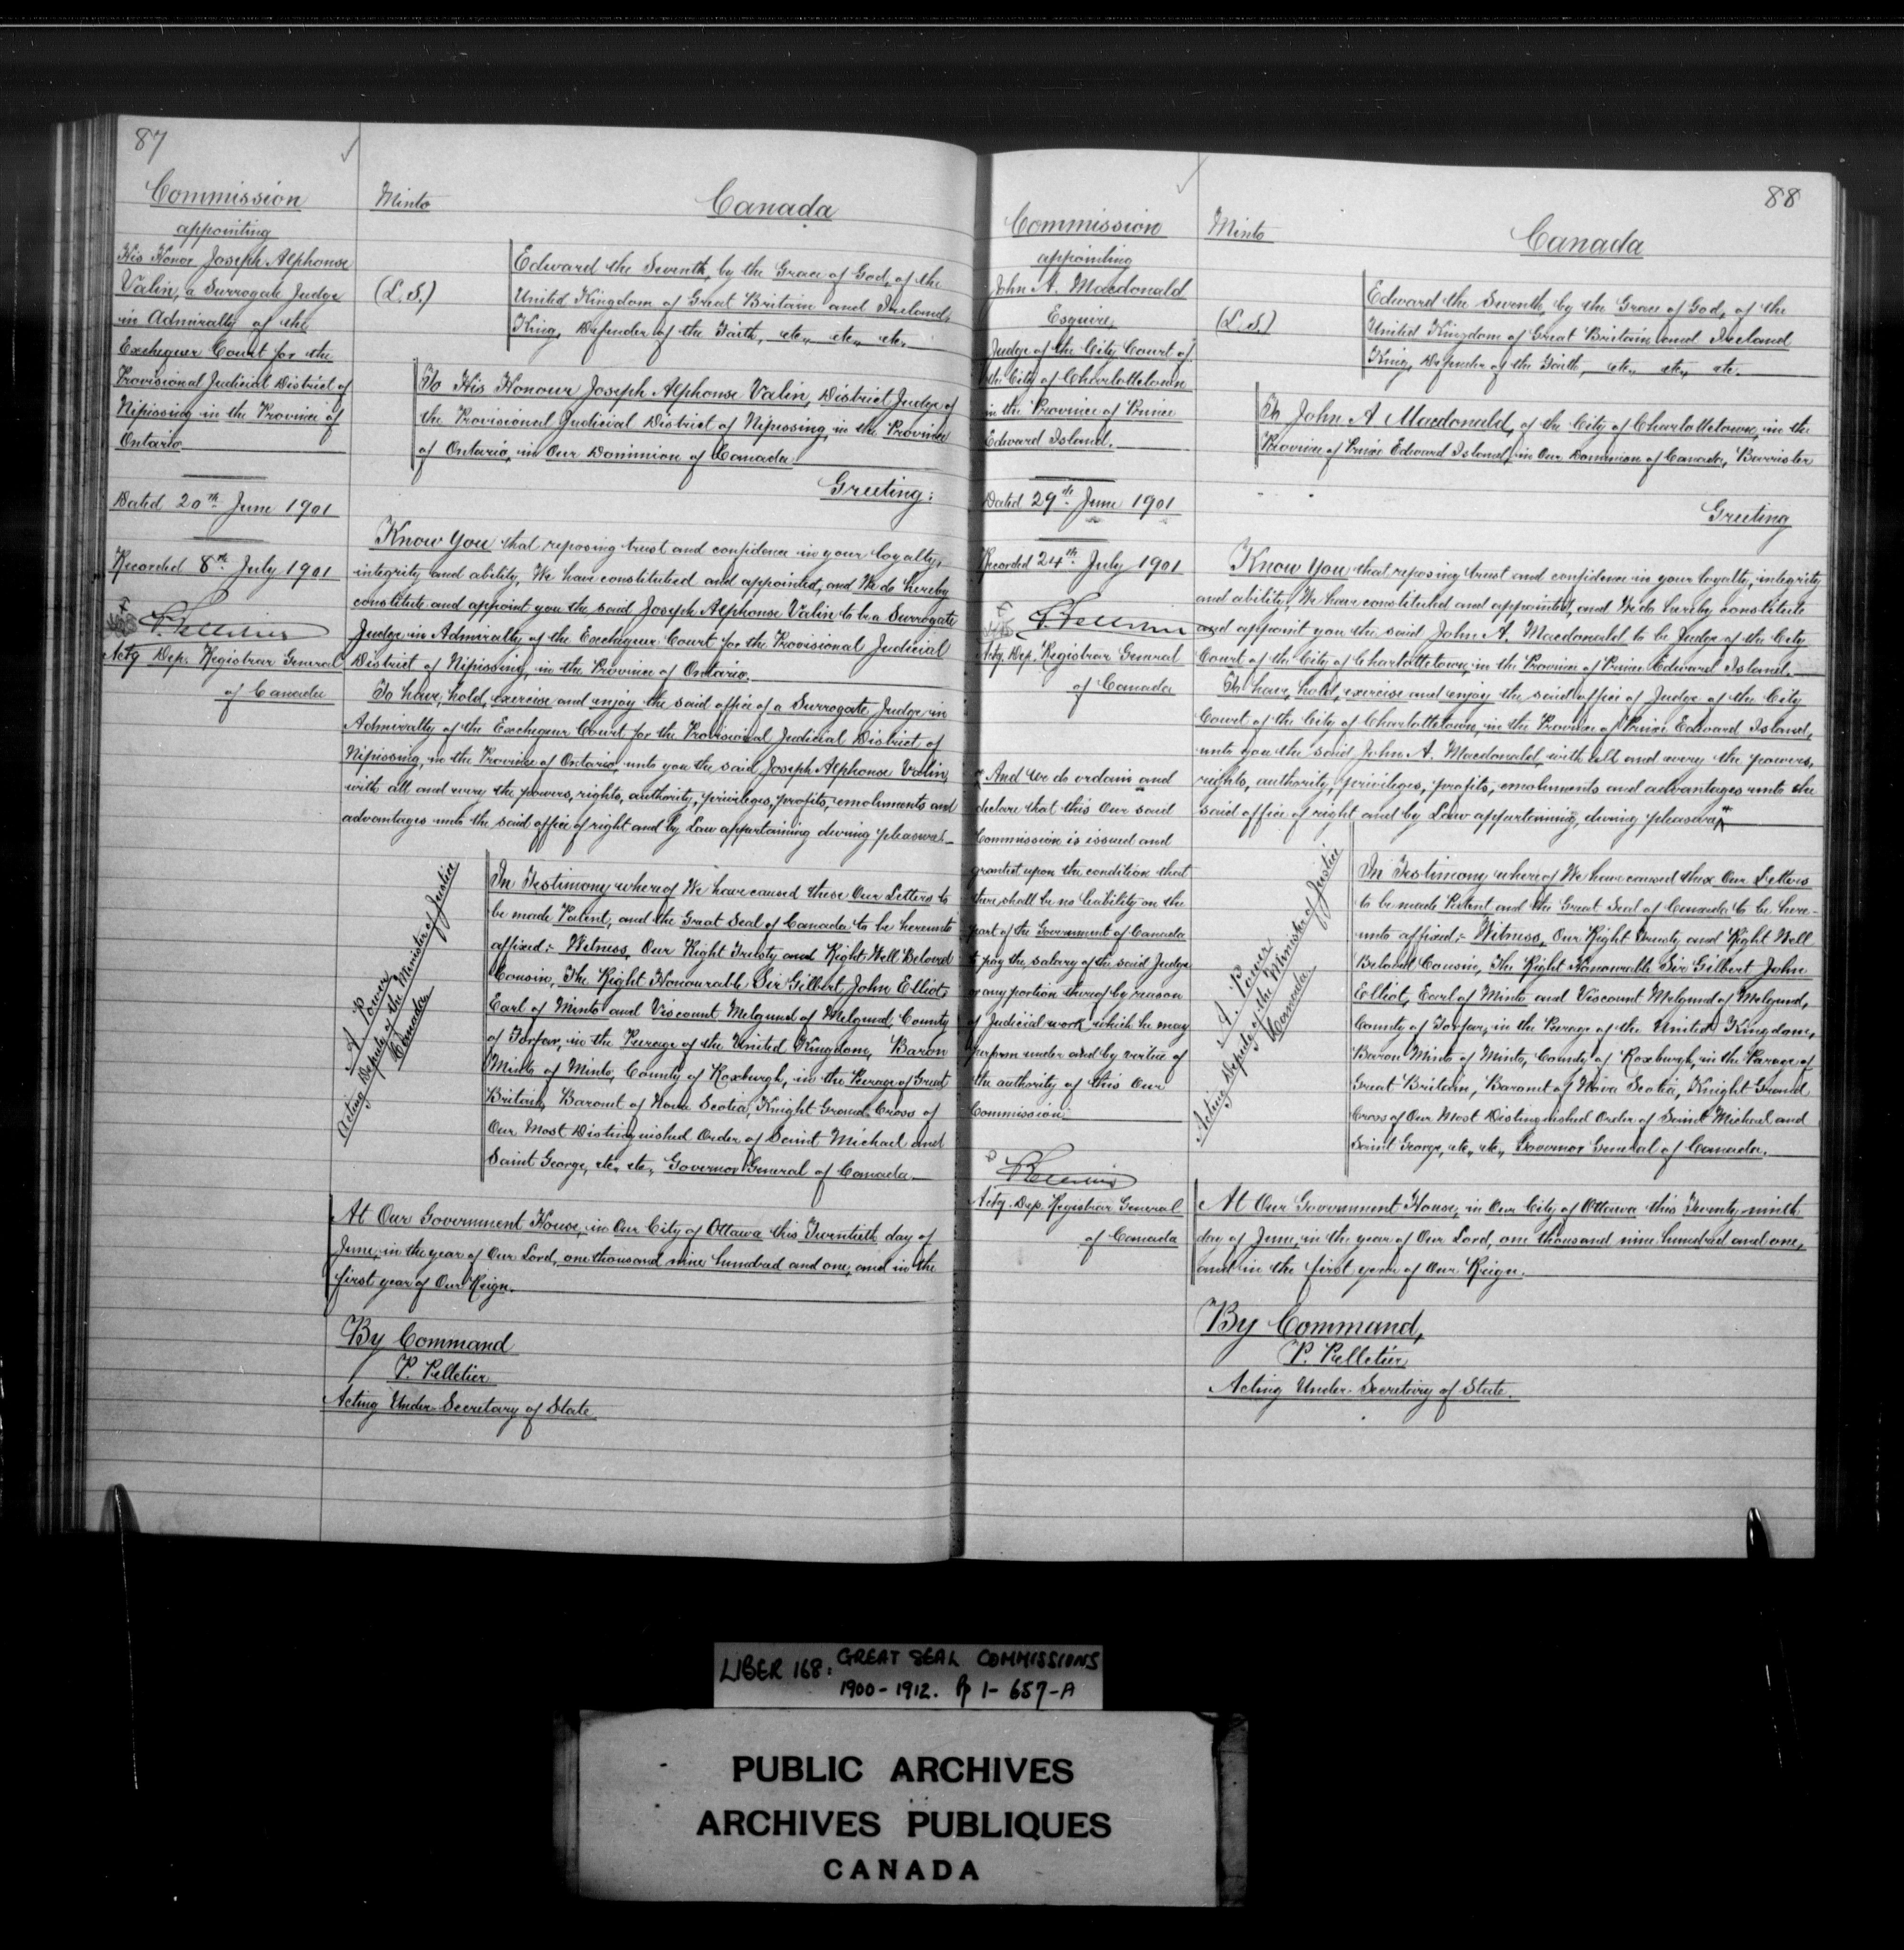 87
Commission
appointing
His Honor Joseph Alphonse
Valin, a Surrogate Judge
in Admiralty of the
Exchequer Court for the
Provisional Judicial District of
Nipissing in the Province of
Ontario
Dated 20th June 1901
Recorded 8th July 1901
P. Pelletier
Actg Dep. Registrar General
of Canada
Minto
Canada
(L.S.)
Edward the Seventh, by the Grace of God, of the
United Kingdom of Great Britain and Ireland,
King, Defender of the Faith, etc., etc., etc.
To His Honour Joseph Alphonse Valin, District Judge of
the Provisional Judicial District of Nipissing, in the Province
of Ontario, in Our Dominion of Canada.
Greeting:
Know You that reposing trust and confidence in your loyalty,
integrity and ability, We have constituted and appointed, and We do hereby
constitute and appoint you the said Joseph Alphonse Valin to be a Surrogate
Judge in Admiralty of the Exchequer Court for the Provisional Judicial
District of Nipissing, in the Province of Ontario.
To have, hold, exercise and enjoy the said office of a Surrogate Judge in
Admiralty of the Exchequer Court for the Provisional Judicial District of
Nipissing, in the Province of Ontario, unto you the said Joseph Alphonse Valin,
with all and every the powers, rights, authority, privileges, profits, emoluments and
advantages unto the said office of right and by Law appertaining during pleasure.
A Power
Acting Deputy of the Minister of Justice
Canada
In Testimony whereof We have caused these Our Letters to
be made Patent, and the Great Seal of Canada to be hereunto
affixed:- Witness, Our Right Trusty and Right Well Beloved
Cousin, The Right Honourable Sir Gilbert John Elliot,
Earl of Minto and Viscount Melgund of Melgund, County
of Forfar, in the Peerage of the United Kingdom, Baron
Minto of Minto, County of Roxburgh, in the Peerage of Great
Britain, Baronet of Nova Scotia, Knight Grand Cross of
Our Most Distinguished Order of Saint Michael and
Saint George, etc., etc., Governor General of Canada.
At Our Government House, in Our City of Ottawa this Twentieth day of
June, in the year of Our Lord, one thousand nine hundred and one, and in the
first year of Our Reign.
By Command
P. Pelletier
Acting Under-Secretary of State
88
Commission
appointing
John A. Macdonald
Esquire,
Judge of the City Court of
the City of Charlottetown
in the Province of Prince
Edward Island.
Dated 29th June 1901
Recorded 24th July 1901
P. Pelletier
Actg. Dep. Registrar General
of Canada
And We do ordain and
declare that this Our said
Commission is issued and
granted upon the condition that
there shall be no liability on the
part of the Government of Canada
to pay the salary of the said Judge
or any portion thereof by reason
of Judicial work which he may
perform under and by virtue of
the authority of this Our
Commission
P. Pelletier
Actg. Dep. Registrar General
of Canada
Minto
Canada
(L.S.)
Edward the Seventh, by the Grace of God, of the
United Kingdom of Great Britain and Ireland
King, Defender of the Faith, etc., etc., etc.
To John A Macdonald, of the City of Charlottetown, in the
Province of Prince Edward Island, in Our Dominion of Canada, Barrister
Greeting
Know You that reposing trust and confidence in your loyalty, integrity
and ability, We have constituted and appointed, and We do hereby constitute
and appoint you the said John A. Macdonald to be Judge of the City
Court of the City of Charlottetown, in the Province of Prince Edward Island.
To have, hold, exercise and enjoy the said office of Judge of the City
Court of the City of Charlottetown, in the Province of Prince Edward Island,
unto you the said John A. Macdonald, with all and every the powers,
rights, authority, privileges, profits, emoluments and advantages unto the
said office of right and by Law appertaining, during pleasure
A. Power
Acting Deputy of the Minister of Justice
Canada
In Testimony whereof We have caused these Our Letters
to be made Patent and the Great Seal of Canada to be here-
unto affixed:- Witness, Our Right Trusty and Right Well
Beloved Cousin, The Right Honourable Sir Gilbert John
Elliot, Earl of Minto and Viscount Melgund of Melgund,
County of Forfar, in the Peerage of the United Kingdom,
Baron Minto of Minto, County of Roxburgh, in the Peerage of
Great Britain, Baronet of Nova Scotia, Knight Grand
Cross of Our Most Distinguished Order of Saint Michael and
Saint George, etc., etc., Governor General of Canada.
At Our Government House, in Our City of Ottawa this Twenty-ninth
day of June, in the year of Our Lord, one thousand nine hundred and one,
and in the first year of Our Reign.
By Command,
P. Pelletier
Acting Under-Secretary of State.
LIBER 168: GREAT SEAL COMMISSIONS
1900-1912. Pp 1-657-A
PUBLIC ARCHIVES
ARCHIVES PUBLIQUES
CANADA